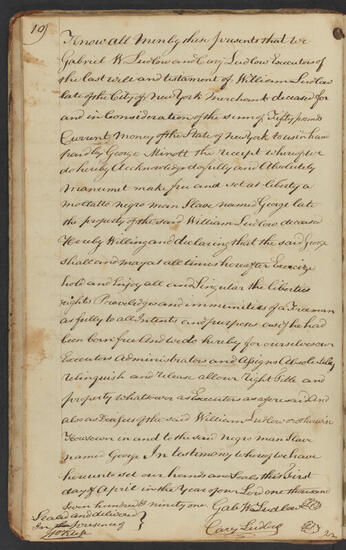 19
Know all Men by these presents that we
Gabriel W Ludlow and Cary Ludlow Executors of
the last will and testament of William Ludlow
late of the City of New York Merchant deceased for
and in Consideration of the sum of Fifty pounds
Current Money of the State of New York to us in hand
paid by George Minott the receipt whereof we
do hereby Acknowledge do fully and Absolutely
Manumit make free and set at Liberty a
molatto negro man Slave named George late
the property of the said William Ludlow deceased
Hereby Willing and declaring that the said George
shall and may at all times hereafter Exercize
hold and Enjoy all and Singular the liberties
rights Priviledges and immunities of a Freeman
as fully to all Intents and purposes as if he had
been born free And we do hereby for ourselves our
Executors Administrators and Assigns Absolutely
relinquish and release all our right Title and
property whatsoever as Executors as aforesaid And
also as Devisees of the said William Ludlow or
Howsoever in and to the said negro man Slave
named George In testimony whereof we have
hereunto set our hands and Seals this First
day of April in the Year of our Lord one thousand
Seven hundred & ninety one Gab W Ludlow
Sealed and delivered
In the presence of
Cary Ludlow